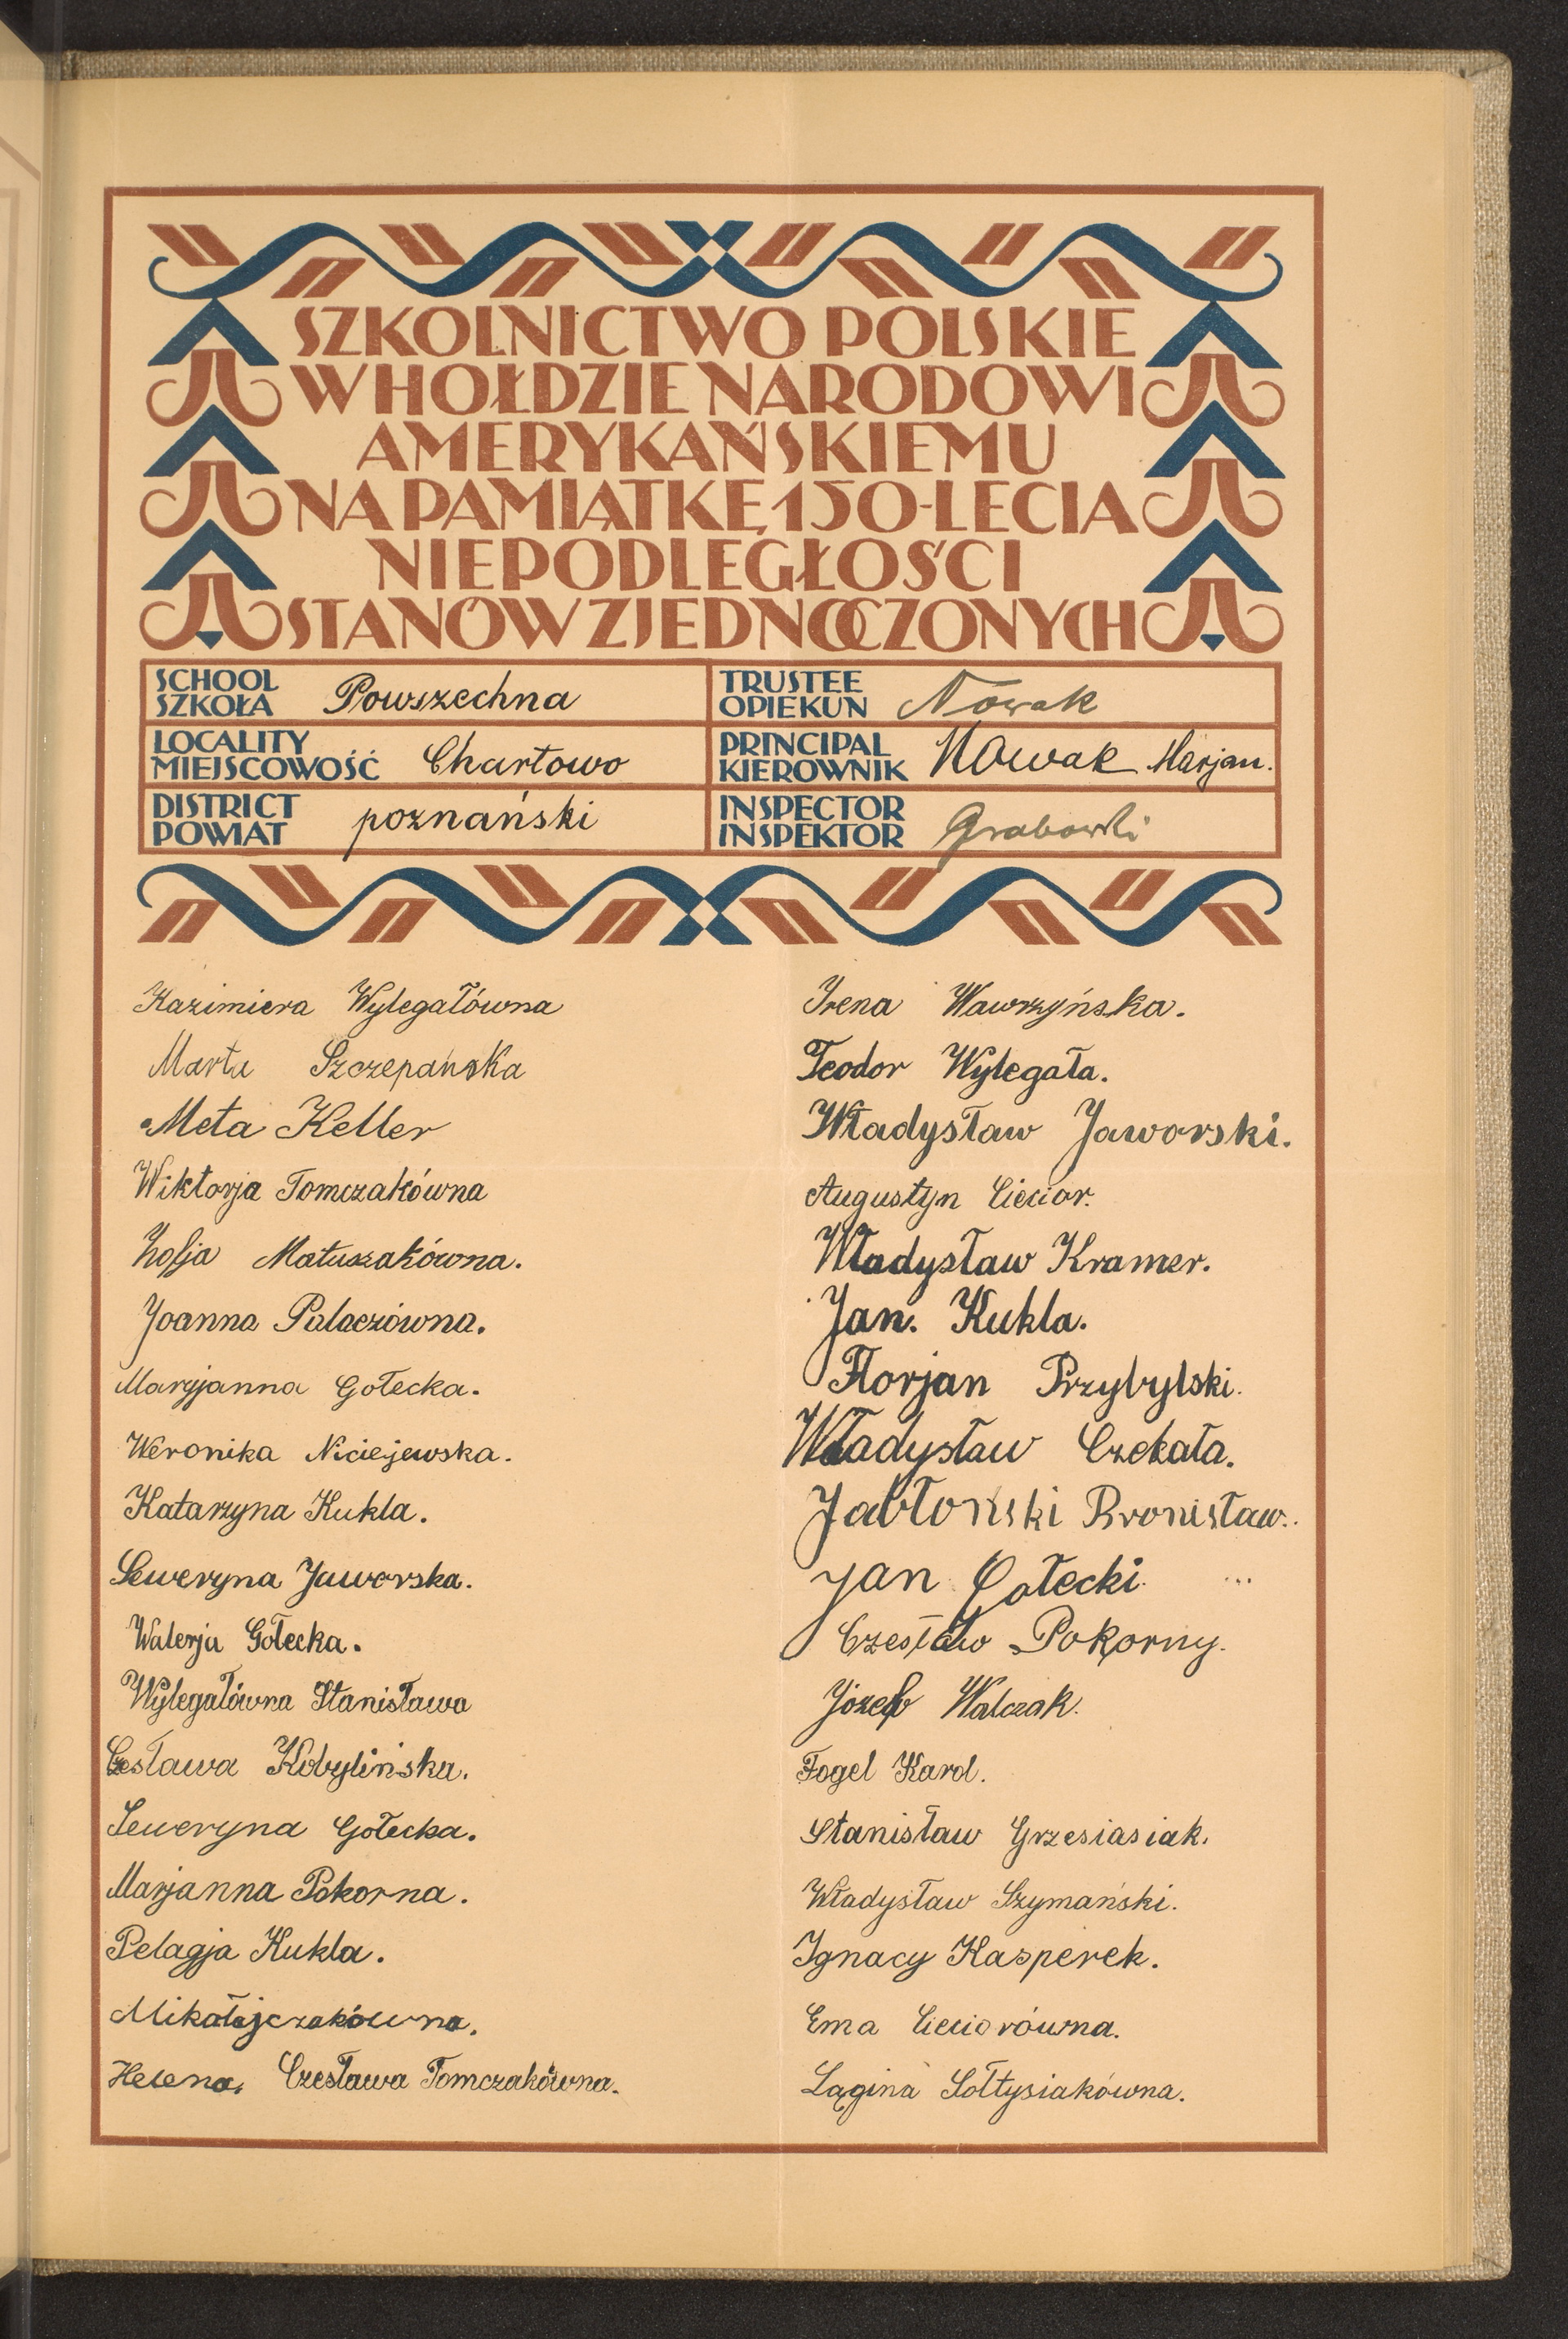 SZKOLNICTWO POLSKIE
W HOŁDZIE NARODOWI
AMERYKAŃSKIEMU
NA PAMIĄTKĘ 150-LECIA
NIEPODLEGŁOŚCI
STANÓW ZJEDNOCZONYCH
SCHOOL
SZKOŁA Powszechna
TRUSTEE
OPIEKUN Nowak
LOCALITY
MIEJSCOWOŚĆ Chartowo
PRINCIPAL
KIEROWNIK Nowak Marjan.
DISTRICT
POWIAT poznański
INSPECTOR
INSPEKTOR Grabowski
Kazimiera Wylegałówna
Marta Szczepańska
Meta Keller
Wiktorja Tomczakówna
Zofja Matuszakówna.
Joanna Palaczówna.
Maryjanna Gołecka.
Weronika Niciejewska.
Katarzyna Kukla.
Seweryna Jaworska.
Walerja Gołecka.
Wylegałówna Stanisława
Czesława Kobylińska.
Seweryna Gołecka.
Marjanna Pokorna.
Pelagja Kukla.
Mikołajczakówna.
Helena. Czesława Tomczakówna.
Irena Wawrzyńska.
Teodor Wylegała.
Władysław Jaworski.
Augustyn Ciecior.
Władysław Kramer.
Jan. Kukla.
Florjan Przybylski.
Władysław Czekała.
Jabłoński Bronisław.
Jan Gołecki
Czesław Pokorny.
Józef Walczak.
Fogel Karol.
Stanisław Grzesiasiak.
Władysław Szymański.
Ignacy Kasperek.
Ema Cieciorówna.
Łągina Sołtysiakówna.